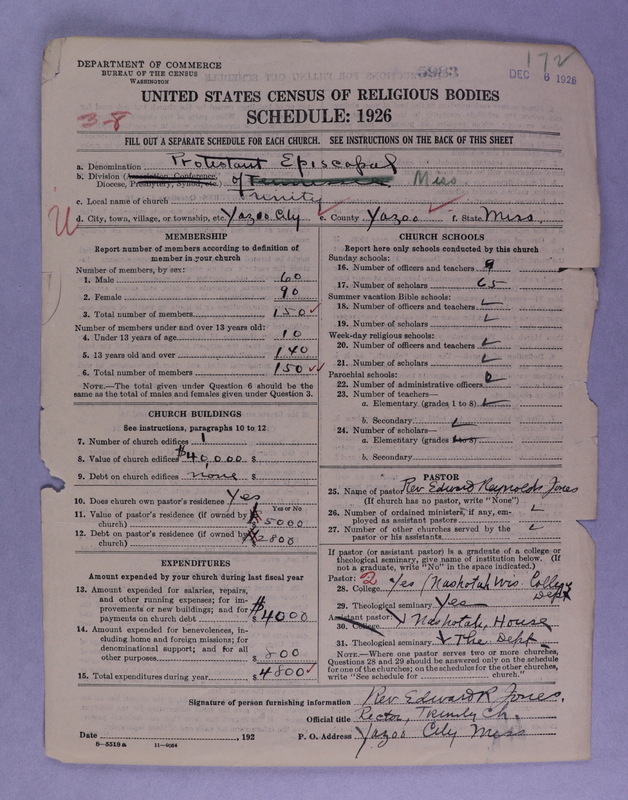 DEPARTMENT OF COMMERCE
BUREAU OF THE CENSUS
WASHINGTON
5983
172
DEC 6 1926
UNITED STATES CENSUS OF RELIGIOUS BODIES
SCHEDULE: 1926
3-8
FILL OUT A SEPARATE SCHEDULE FOR EACH CHURCH. SEE INSTRUCTIONS ON THE BACK OF THIS SHEET
a. Denomination Protestant Episcopal
b. Division (Association, Conference,
Diocese, Presbytery, Synod, etc.) of Tennessee Miss.
c. Local name of church Trinity
d. City, town, village, or township, etc. Yazoo City e. County Yazoo f. State Miss.
MEMBERSHIP
Report number of members according to definition of
member in your church
Number of members, by sex:
1. Male 60
2. Female 90
3. Total number of members 150
Number of members under and over 13 years old:
4. Under 13 years of age 10
5. 13 years old and over 140
6. Total number of members 150
NOTE.—The total given under Question 6 should be the
same as the total of males and females given under Question 3.
CHURCH BUILDINGS
See instructions, paragraphs 10 to 12
7. Number of church edifices 1
8. Value of church edifices $40,000 $
9. Debt on church edifices none $
10. Does church own pastor's residence Yes
Yes or No
11. Value of pastor's residence (if owned by
church) $5000
12. Debt on pastor's residence (if owned by
church) $2800
EXPENDITURES
Amount expended by your church during last fiscal year
13. Amount expended for salaries, repairs,
and other running expenses; for im-
provements or new buildings; and for
payments on church debt $4000
14. Amount expended for benevolences, in-
cluding home and foreign missions; for
denominational support; and for all
other purposes 800
15. Total expenditures during year $4800
CHURCH SCHOOLS
Report here only schools conducted by this church
Sunday schools:
16. Number of officers and teachers 9
17. Number of scholars 65
Summer vacation Bible schools:
18. Number of officers and teachers
19. Number of scholars
Week-day religious schools:
20. Number of officers and teachers
21. Number of scholars
Parochial schools:
22. Number of administrative officers
23. Number of teachers—
a. Elementary (grades 1 to 8)
b. Secondary
24. Number of scholars—
a. Elementary (grades 1 to 8)
b. Secondary
PASTOR
25. Name of pastor Rev Edward Reynolds Jones
(If church has no pastor, write "None")
26. Number of ordained ministers, if any, em-
ployed as assistant pastors
27. Number of other churches served by the
pastor or his assistants
If pastor (or assistant pastor) is a graduate of a college or
theological seminary, give name of institution below. (If
not a graduate, write "No" in the space indicated.)
Pastor: 2
28. College Yes (Nashotah Wis. College
Dept
29. Theological seminary Yes
Assistant pastor:
30. College Nashotah, House
31. Theological seminary The Dept.
NOTE.—Where one pastor serves two or more churches,
Questions 28 and 29 should be answered only on the schedule
for one of the churches; on the schedules for the other churches,
write "See schedule for church."
Signature of person furnishing information Rev Edward R Jones.
Official title Rector, Trinity Ch.
Date , 192 P. O. Address Yazoo City Miss
8—5519a 11—9054